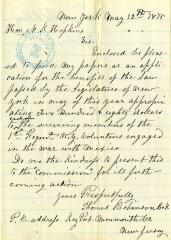 New York May 12th 1875
Hon. N. K. Hopkins
Sir
Enclosed be pleas
ed to find my papers as an appli
cation for the benefits of the Law
passed by the Legislature of New
York in May of this year appropri
ating Two Hundred & eighty dollars
to the surviving members of the
1st Regmt N.Y. Volunteers engaged
in the war with Mexico
Do me the kindness to present this
to the Commission for its forth
coming action
Yours Respectfully
Thomas
P.O. address Keyport Monmouth Co
New Jersey